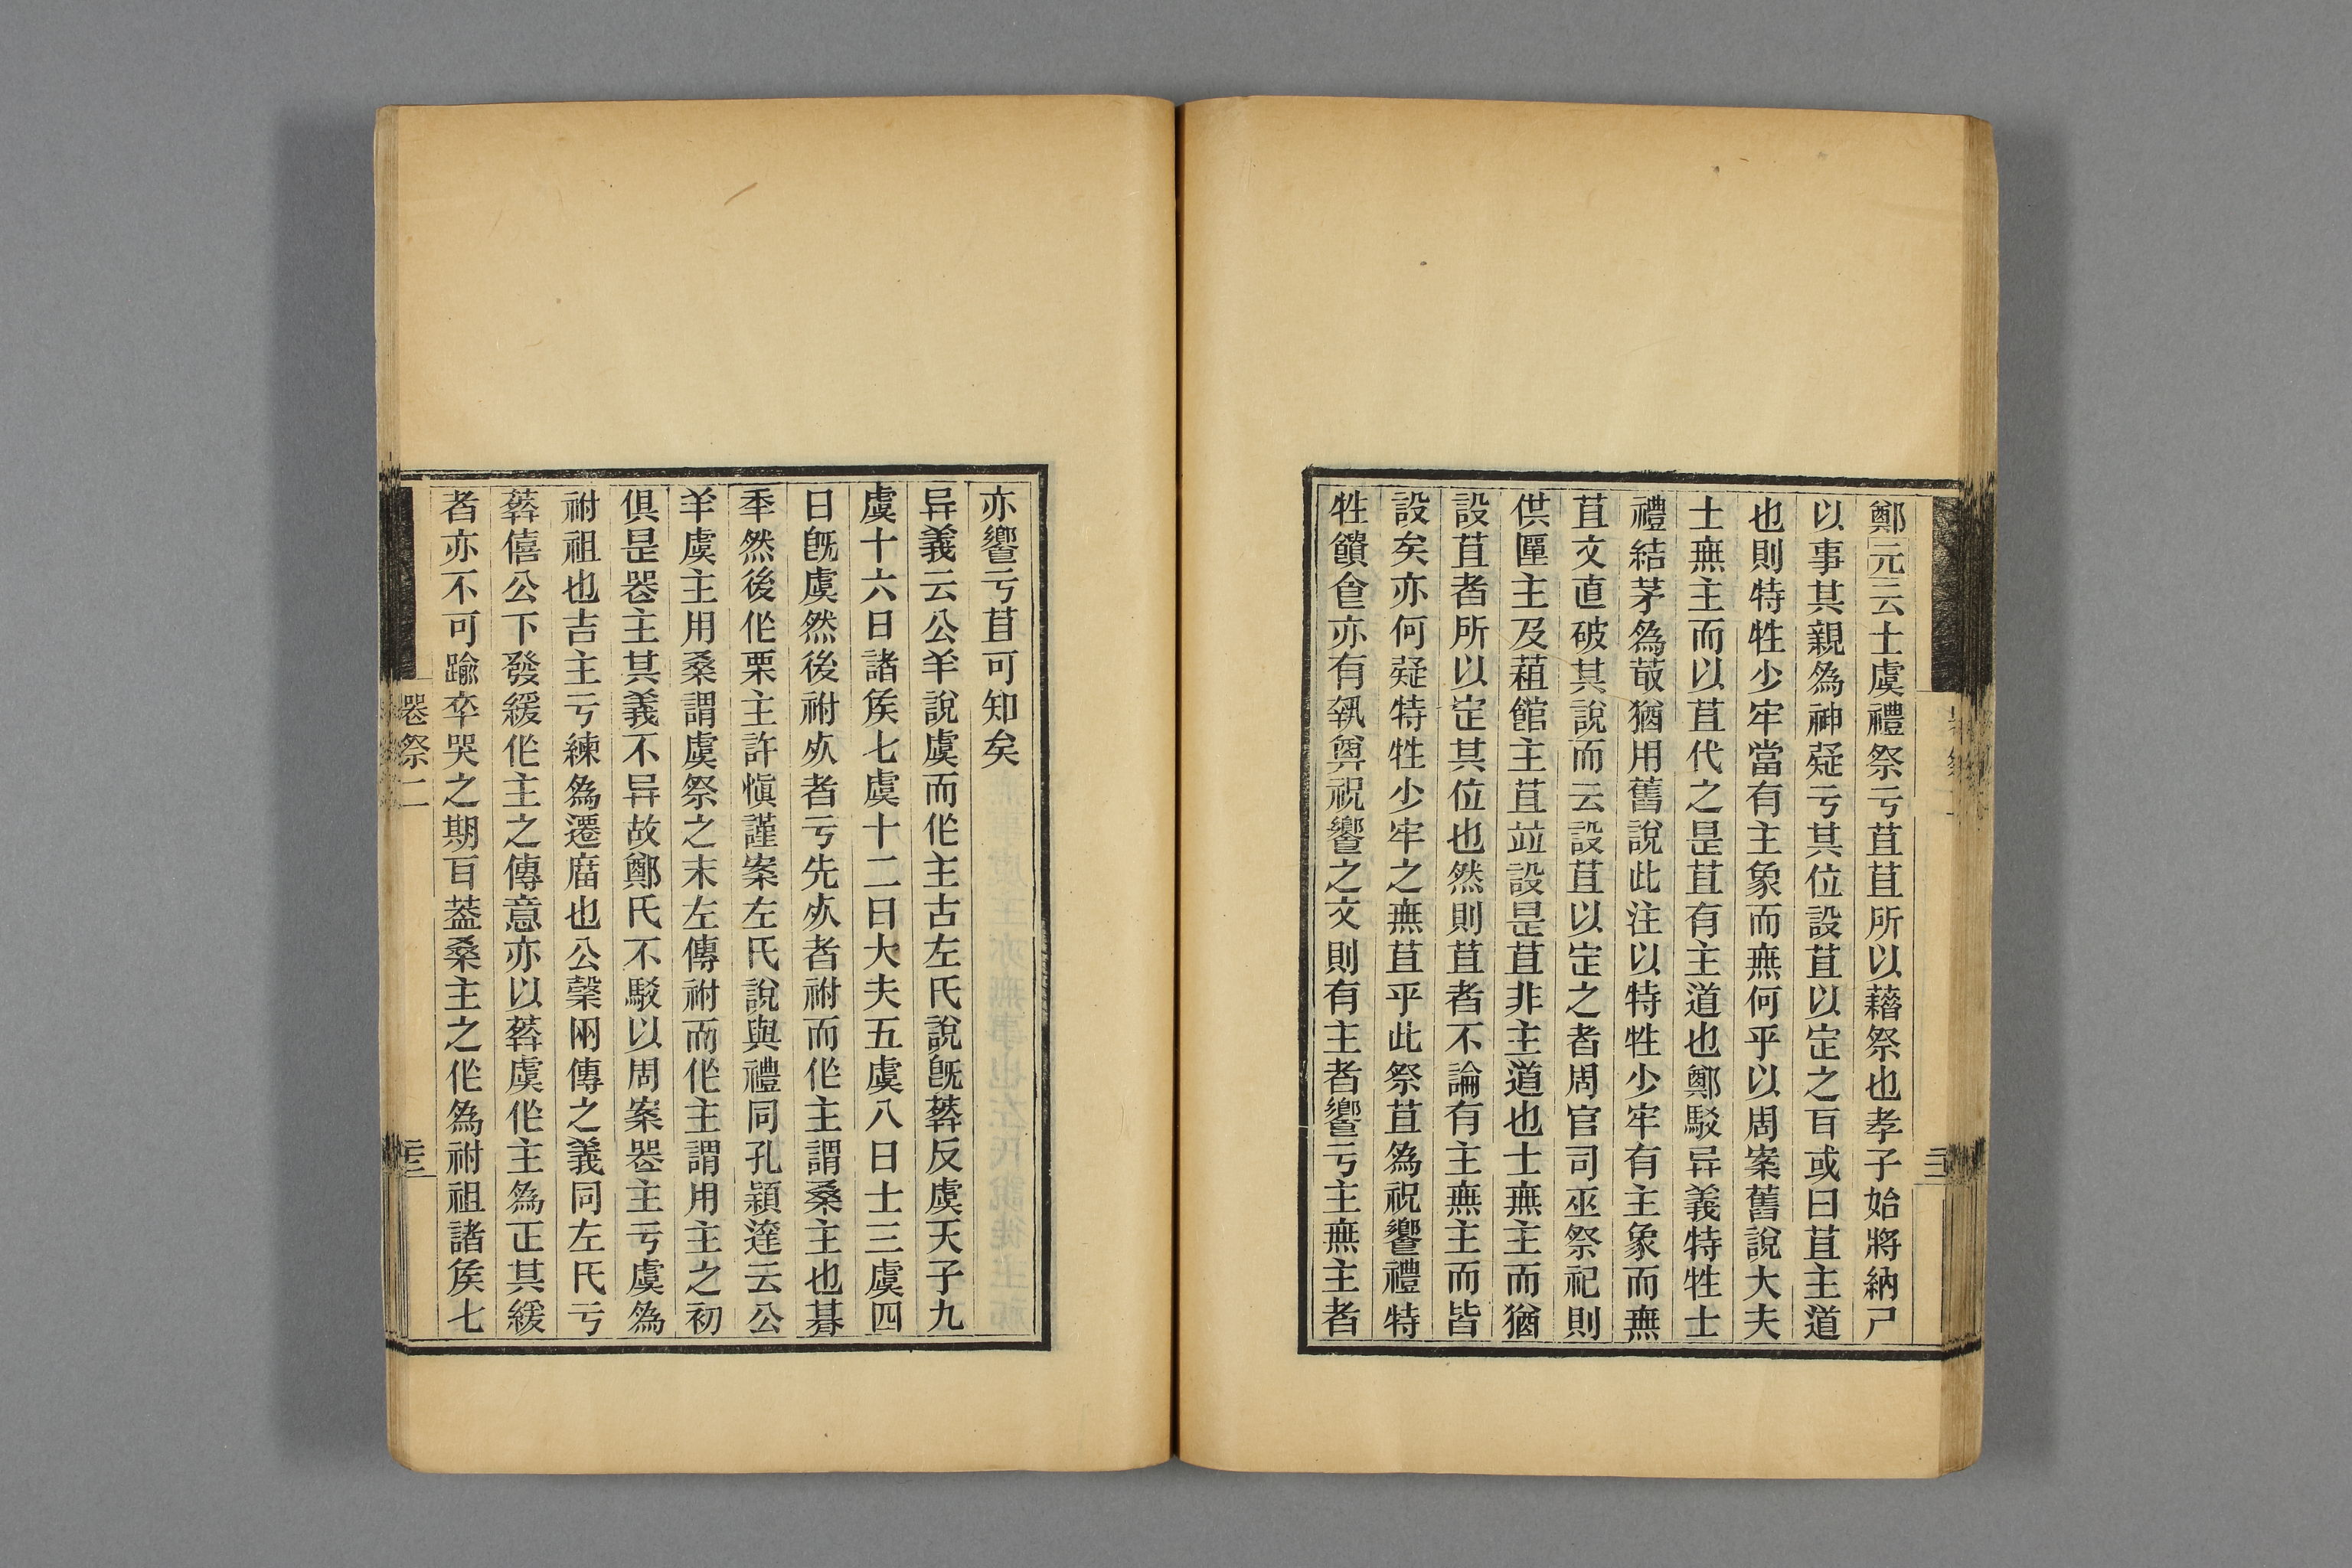 鄭元云士虞禮祭亏苴苴所以藉祭也孝子始將納尸
以事其親為神疑亏其位設苴以定之百或曰苴主道
也則特牲少牢當有主象而無何乎以周案舊說大夫
士無主而以苴代之是苴有主道也鄭駁异義特牲士
禮結茅為菆猶用舊說此注以特牲少牢有主象而無
苴文直破其說而云設苴以定之者周官司巫祭祀則
供匰主及蒩館主苴竝設是苴非主道也士無主而猶
設苴者所以定其位也然則苴者不論有主無主而皆
設矣亦何疑特牲少牢之無苴乎此祭苴為祝饗禮特
牲饋食亦有執奠祝饗之文則有主者饗亏主無主者
亦饗亏苴可知矣
异義云公羊說虞而作主古左氏說既葬反虞天子九
虞十六日諸矦七虞十二日大夫五虞八日士三虞四
日既虞然後祔𣦸者亏先𣦸者祔而作主謂桑主也朞
秊然後作栗主許慎謹案左氏說與禮同孔穎達云公
羊虞主用桑謂虞祭之末左傳祔而作主謂用主之初
俱是喪主其義不异故鄭氏不駁以周案喪主亏虞為
祔祖也吉主亏練為遷廟也公榖兩傳之義同左氏亏
葬僖公下發緩作主之傳意亦以葬虞作主為正其緩
者亦不可踰卒哭之期百蓋桑主之作為祔祖諸矦七
喪祭二